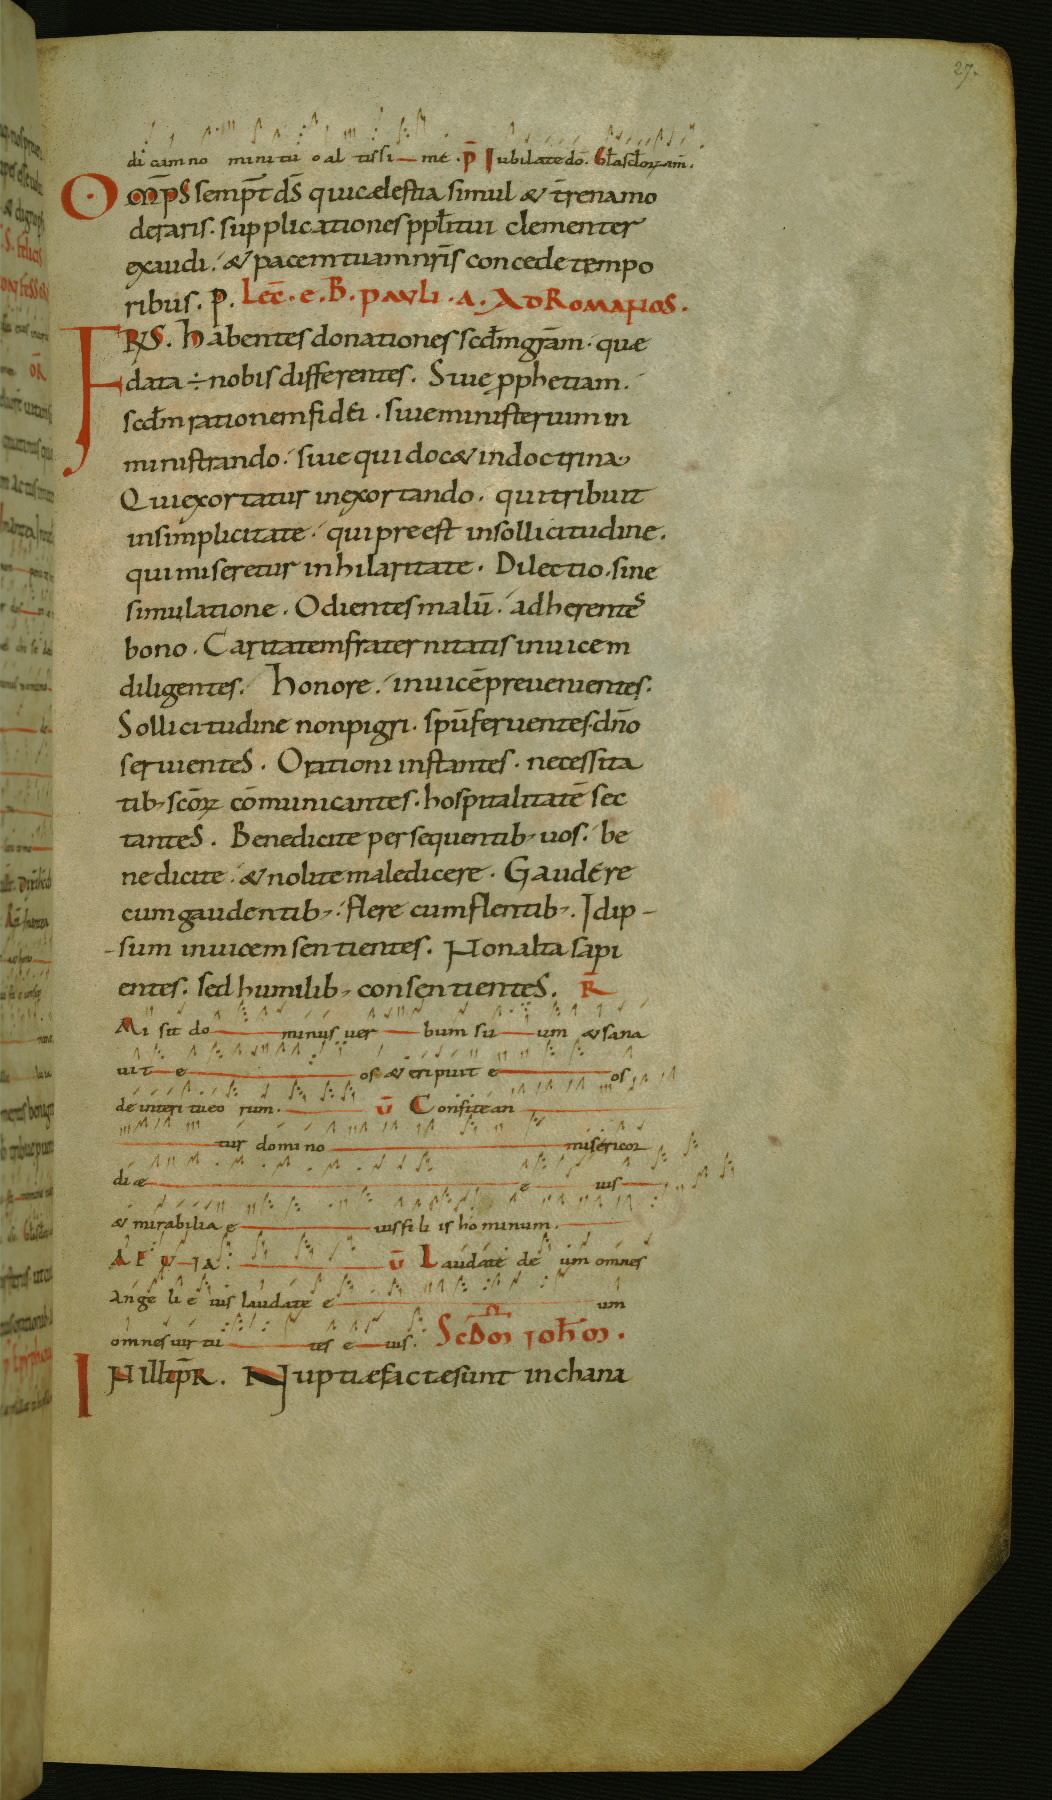 27.
dicam no mini tu o al tissi me . p̄ Iubilate dō. Gła scłoꝝ am̄.
Om̄ps semp̄t ds̄ qui cælestia simul & t̄rena mo
deraris. supplicationes ppłi tui clementer
exaudi. & pacem tuam nr̄is concede tempo
ribus. P. Lec̄. e. B. pauli. A. Ad Romanos.
FRS. Habentes donationes scd̄m gr̄am. quæ
data ÷ nobis differentes. Siue pphetiam.
scd̄m rationem fidei. siue ministerium in
ministrando. siue qui doc& in doctrina
Qui exortatur in exortando. qui tribuit
in simplicitate. qui preest in sollicitudine.
qui miseretur in hilaritate. Dilectio. sine
simulatione. Odientes malū. adherentes
bono. Caritatem fraternitatis inuicem
diligentes. Honore. inuicē preuenientes.
Sollicitudine non pigri. spū feruentes. dn̄o
seruientes. Orationi instantes. necessita
tib; scōꝝ cōmunicantes. hospitalitatē sec
tantes. Benedicite persequentib; uos. be
nedicite. & nolite maledicere. Gaudere
cum gaudentib;. flere cum flentib;. Idip-
-sum inuicem sentientes. Non alta sapi
entes. sed humilib; consentientes. R̄
Misit do minus uer bum su um & sana
uit e os & eripuit e os
de interitu eo rum. v̄ Confitean
tur domino misericor
diæ e ius
& mirabilia e ius fili is hominum.
AEVIA: v̄ Laudate deum omnes
Angeli eius laudate e um
omnes uirtu tes e ius. Scd̄m Ioh̄m.
IN illt̄pR. Nuptiæ factæ sunt in chana